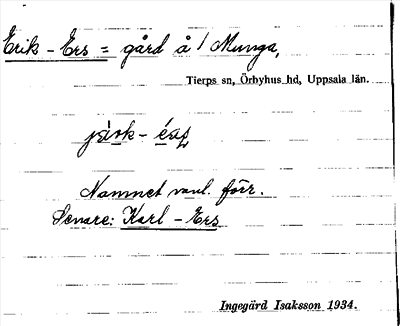 Erik-Ers = gård å/Munga,
Tierps sn, Örbyhus hd, Uppsala län.
Namnet vanl. förr.
Senare: Karl-Ers
Ingegärd Isaksson 1934.